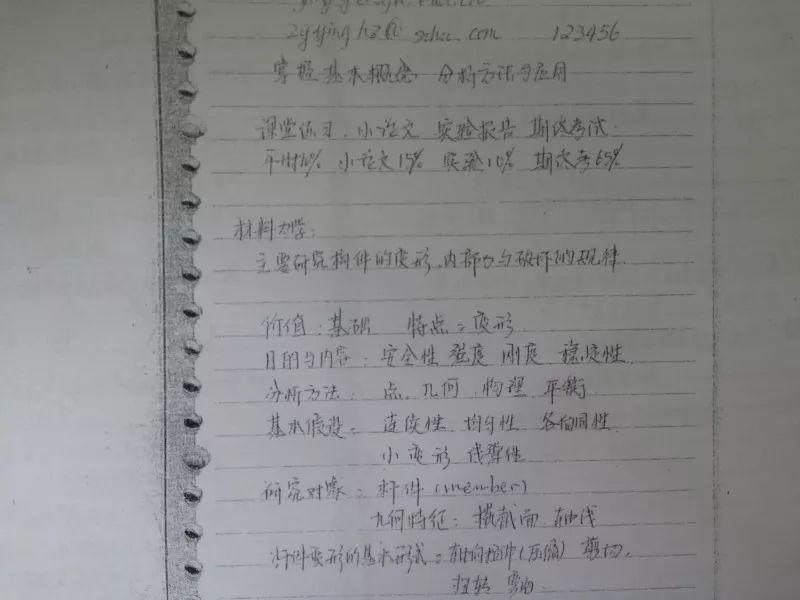 zyyinghz@sohu.com 123456
掌握基本概念 分析方法与应用
课堂练习、小论文 实验报告 期终考试
平时10% 小论文15% 实验10% 期终考65%
材料力学:
主要研究构件的变形、内部力与破坏的规律
价值:基础 特点:变形
目的与内容:安全性 强度 刚度 稳定性
分析方法:点、几何、物理、平衡
基本假设:连续性 均匀性 各向同性
小变形 线弹性
研究对象:杆件(member)
几何特征:横截面、轴线
杆件变形的基本形式:轴向拉伸(压缩) 剪切、
扭转 弯曲.